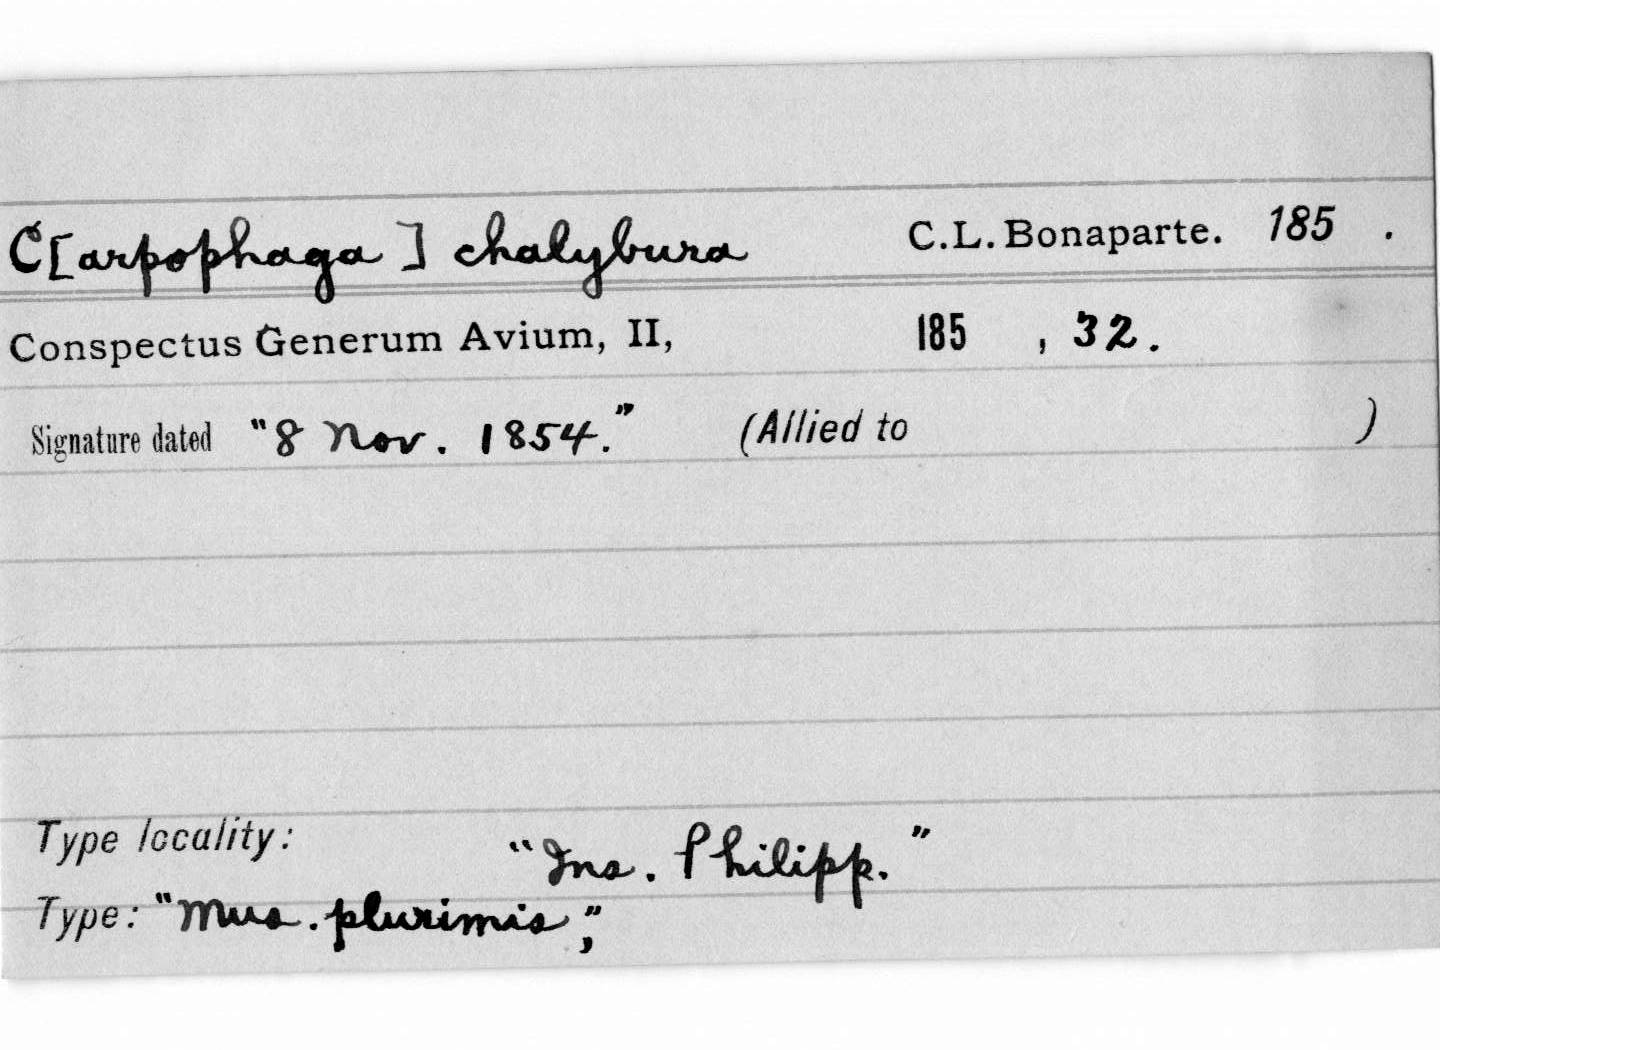 C[arpophaga] chalybura C.L. Bonaparte. 185 .
Conspectus Generum Avium, II, 185 , 32.
Signature dated "8 Nov. 1854." (Allied to )
Type locality: "Ins. Philipp."
Type: "Mus. plurimis",